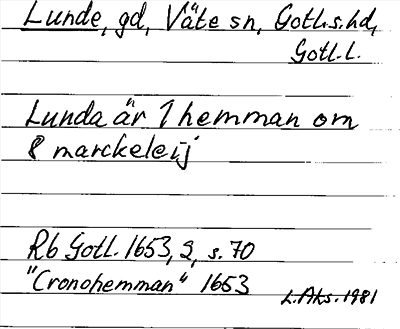 Lunde, gd, Väte sn, Gotl.s.hd,
Gotl.l.
Lunda är 1 hemman om
8 marckeleij
Rb Gotl. 1653, 2, s. 70
"Cronohemman" 1653
L.Aks. 1981